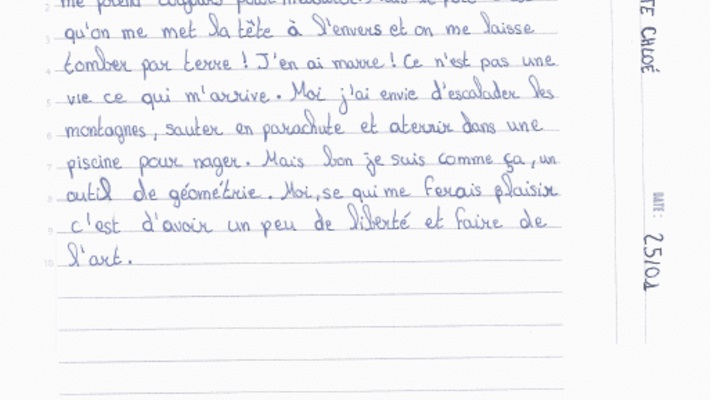 me prend toujours pour
qu'on me met la tête à l'envers et on me laisse
tomber par terre ! J'en ai marre ! Ce n'est pas une
vie ce qui m'arrive. Moi j'ai envie d'escalader les
montagnes, sauter en parachute et aterrir dans une
piscine pour nager. Mais bon je suis comme ça, un
outil de géométrie. Moi, se qui me ferais plaisir
c'est d'avoir un peu de liberté et faire de
l'art.
TE CHLOÉ
DATE : 25/01
2
3
4
5
6
7
8
9
10